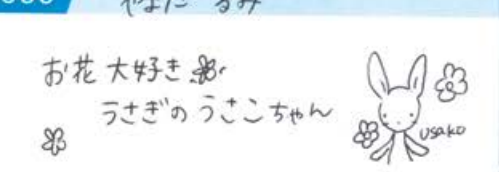 るみ
お花 大好き
うさぎの うさこちゃん
usako